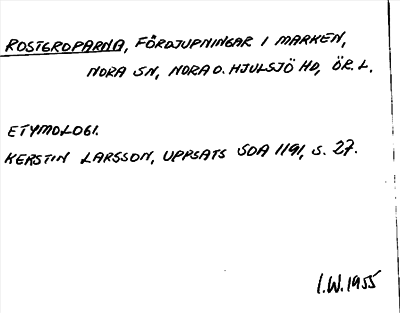 ROSTGROPARNA, FÖRDJUPNINGAR I MARKEN,
NORA SN, NORA O. HJULSJÖ HD, ÖR. L.
ETYMOLOGI.
KERSTIN LARSSON, UPPSATS SOA 1191, S. 27.
I.W. 1955